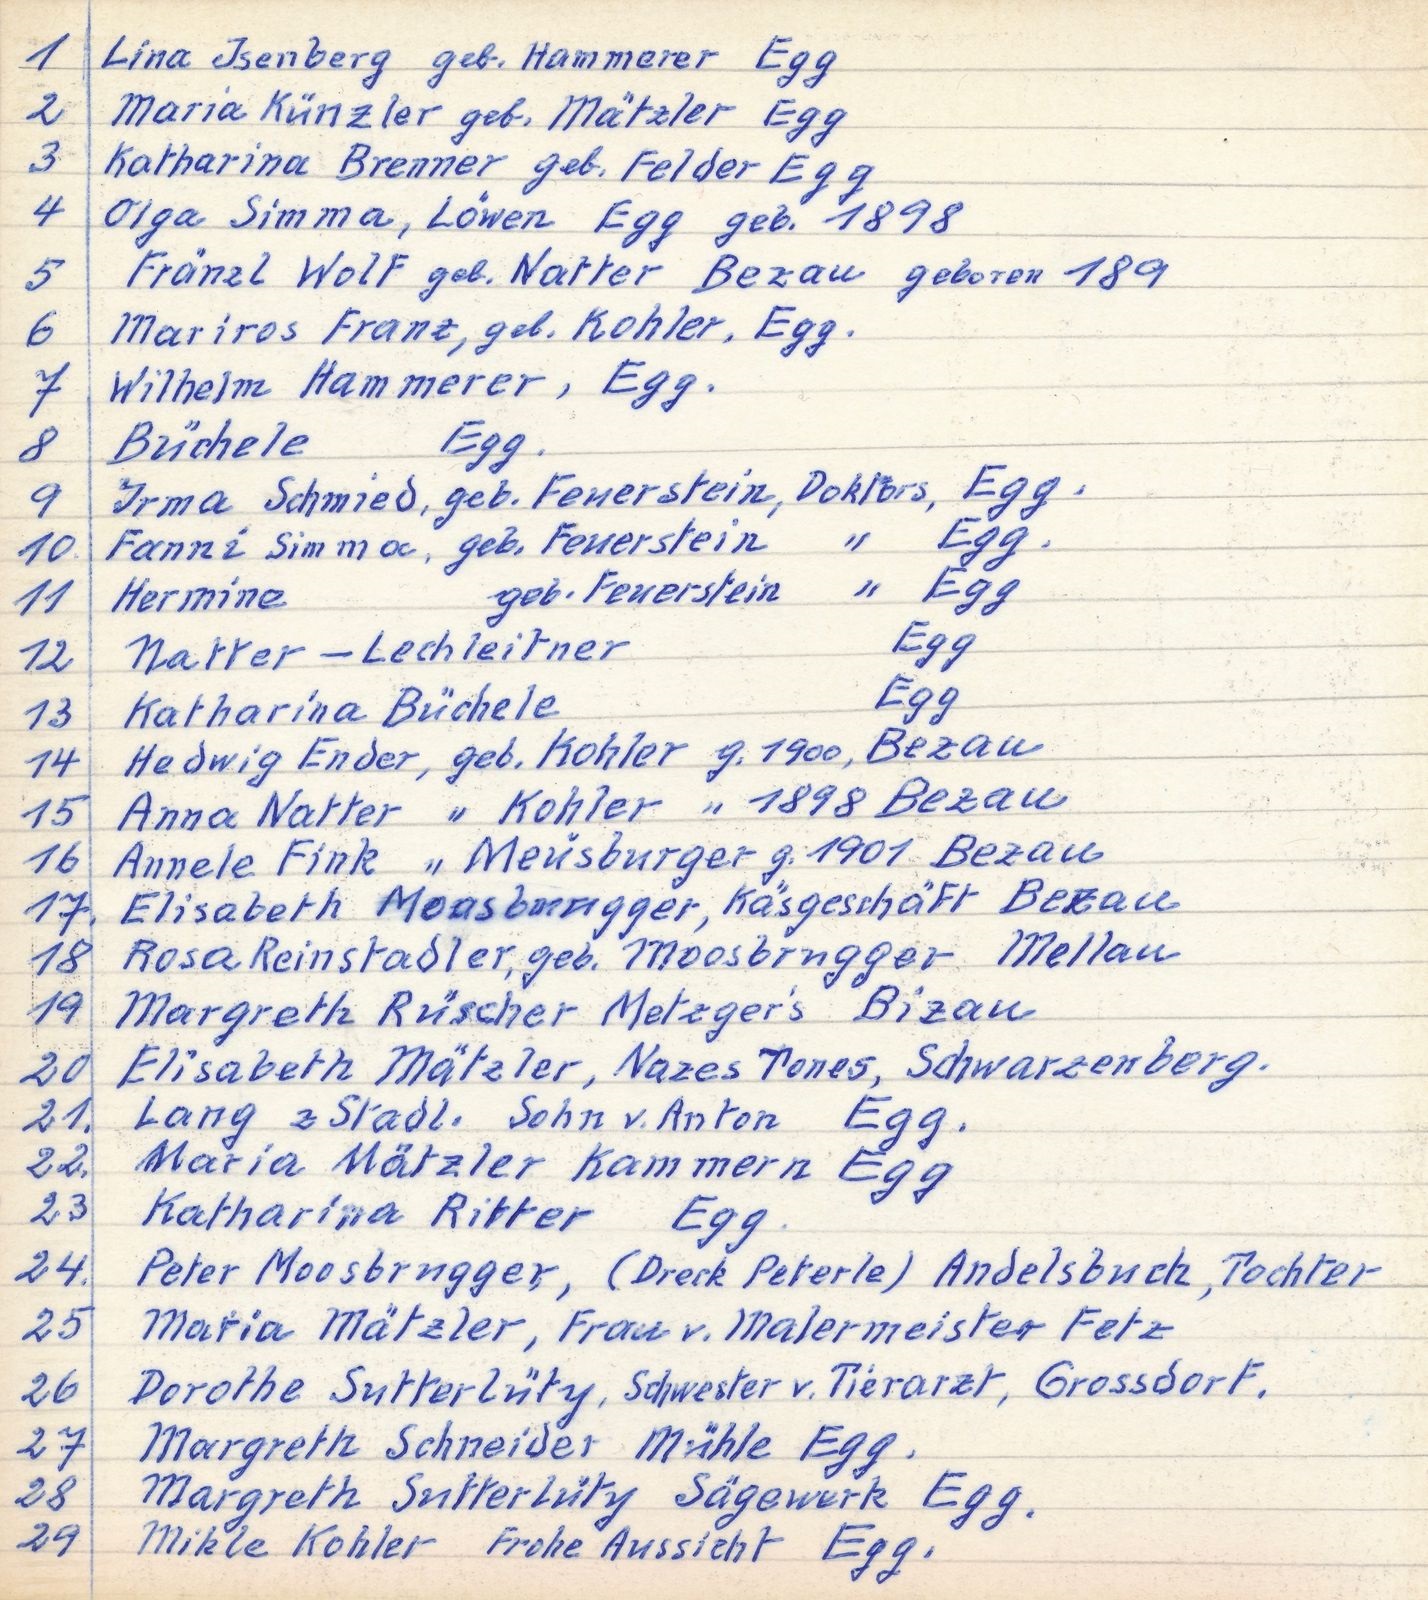 1 Lina Isenberg geb. Hammerer Egg
2 Maria Künzler geb. Mätzler Egg
3 Katharina Brenner geb. Felder Egg
4 Olga Simma, Löwen Egg geb. 1898
5 Fränzl Wolf geb. Natter Bezau geboren 189
6 Mariros Franz, geb. Kohler, Egg.
7 Wilhelm Hammerer, Egg.
8 Büchele Egg.
9 Irma Schmied, geb. Feuerstein, Doktors, Egg.
10 Fanni Simma, geb. Feuerstein " Egg.
11 Hermine geb. Feuerstein " Egg
12 Natter – Lechleitner Egg
13 Katharina Büchele Egg
14 Hedwig Ender, geb. Kohler g. 1900, Bezau
15 Anna Natter " Kohler " 1898 Bezau
16 Annele Fink " Meüsburger g. 1901 Bezau
17. Elisabeth Moosbrugger, Käsgeschäft Bezau
18 Rosa Reinstadler, geb. Moosbrugger Mellau
19 Margreth Rüscher Metzger's Bizau
20 Elisabeth Mätzler, Nazes Tones, Schwarzenberg.
21. Lang z Stadl. Sohn v. Anton Egg.
22. Maria Mätzler Kammern Egg
23 Katharina Ritter Egg.
24. Peter Moosbrugger, (Dreck Peterle) Andelsbuch, Tochter
25 Maria Mätzler, Frau v. Malermeister Fetz
26 Dorothe Sutterlüty, Schwester v. Tierarzt, Grossdorf.
27 Margreth Schneider Mühle Egg.
28 Margreth Sutterlüty Sägewerk Egg.
29 Mikle Kohler Frohe Aussicht Egg.